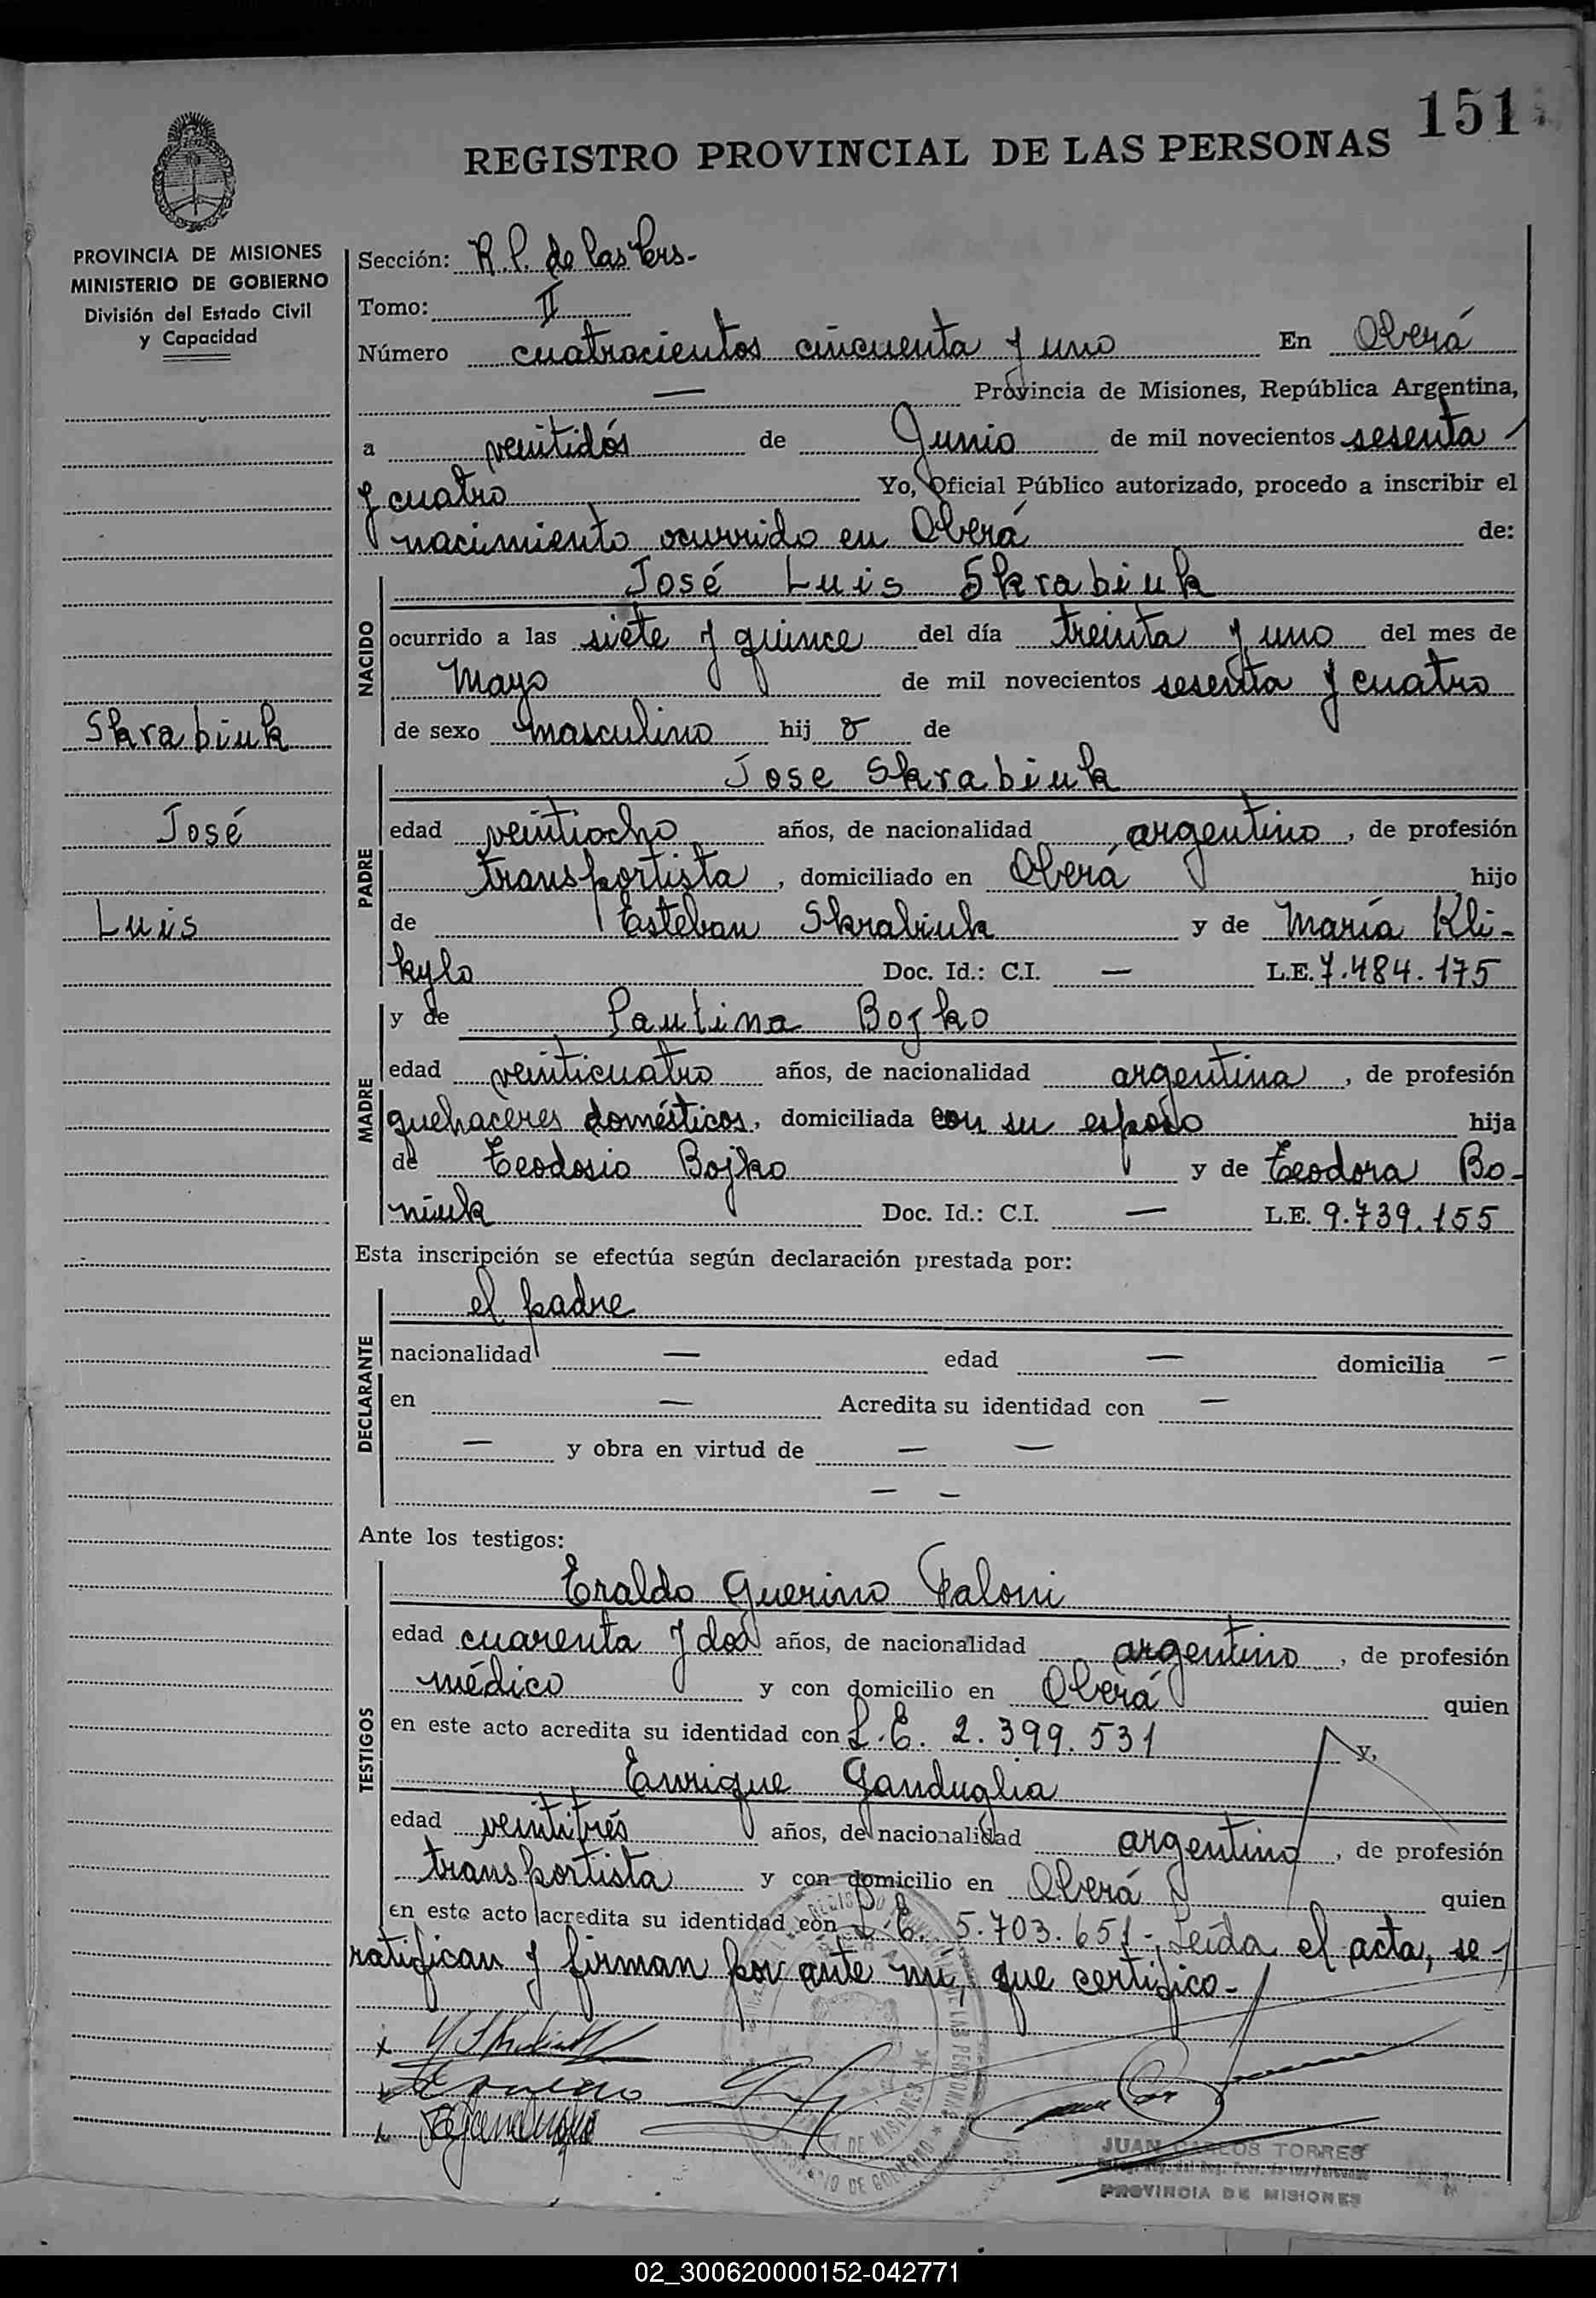 151
REGISTRO PROVINCIAL DE LAS PERSONAS
PROVINCIA DE MISIONES
MINISTERIO DE GOBIERNO
División del Estado Civil
y Capacidad
Skrabiuk
José
Luis
Sección: R. P. de las Pers.-
Tomo: II
Número cuatrocientos cincuenta y uno En Oberá
— Provincia de Misiones, República Argentina,
a veintidós de Junio de mil novecientos sesenta
y cuatro Yo, Oficial Público autorizado, procedo a inscribir el
nacimiento ocurrido en Oberá de:
NACIDO
José Luis Skrabiuk
ocurrido a las siete y quince del día treinta y uno del mes de
Mayo de mil novecientos sesenta y cuatro
de sexo masculino hij o de
PADRE
Jose Skrabiuk
edad veintiocho años, de nacionalidad argentino, de profesión
transportista, domiciliado en Oberá hijo
de Esteban Skrabiuk y de María Kli-
kylo Doc. Id.: C.I. — L.E. 7.484.175
MADRE
y de Paulina Bojko
edad veinticuatro años, de nacionalidad argentina, de profesión
quehaceres domésticos, domiciliada con su esposo hija
de Teodosio Bojko y de Teodora Bo-
niuk Doc. Id.: C.I. — L.E. 9.739.155
Esta inscripción se efectúa según declaración prestada por:
DECLARANTE
el padre
nacionalidad — edad — domicilia —
en — Acredita su identidad con —
— y obra en virtud de — —
— —
Ante los testigos:
TESTIGOS
Eraldo Guerino Faloni
edad cuarenta y dos años, de nacionalidad argentino, de profesión
médico y con domicilio en Oberá quien
en este acto acredita su identidad con L.E. 2.399.531 y,
Enrique Ganduglia
edad veintitrés años, de nacionalidad argentino, de profesión
transportista y con domicilio en Oberá quien
en este acto acredita su identidad con L.E. 5.703.651-, Leída el acta, se
ratifican y firman por ante mí, que certifico.-
JUAN CARLOS TORRES
PROVINCIA DE MISIONES
02_300620000152-042771